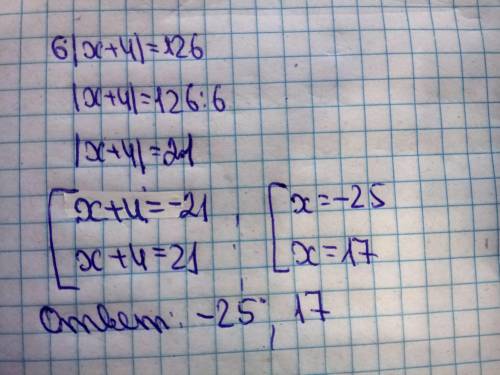 6|x+4|=126
|x+4|=126:6
|x+4|=21
[x+4=-21, [x=-25
x+4=21; x=17
Ответ: -25; 17